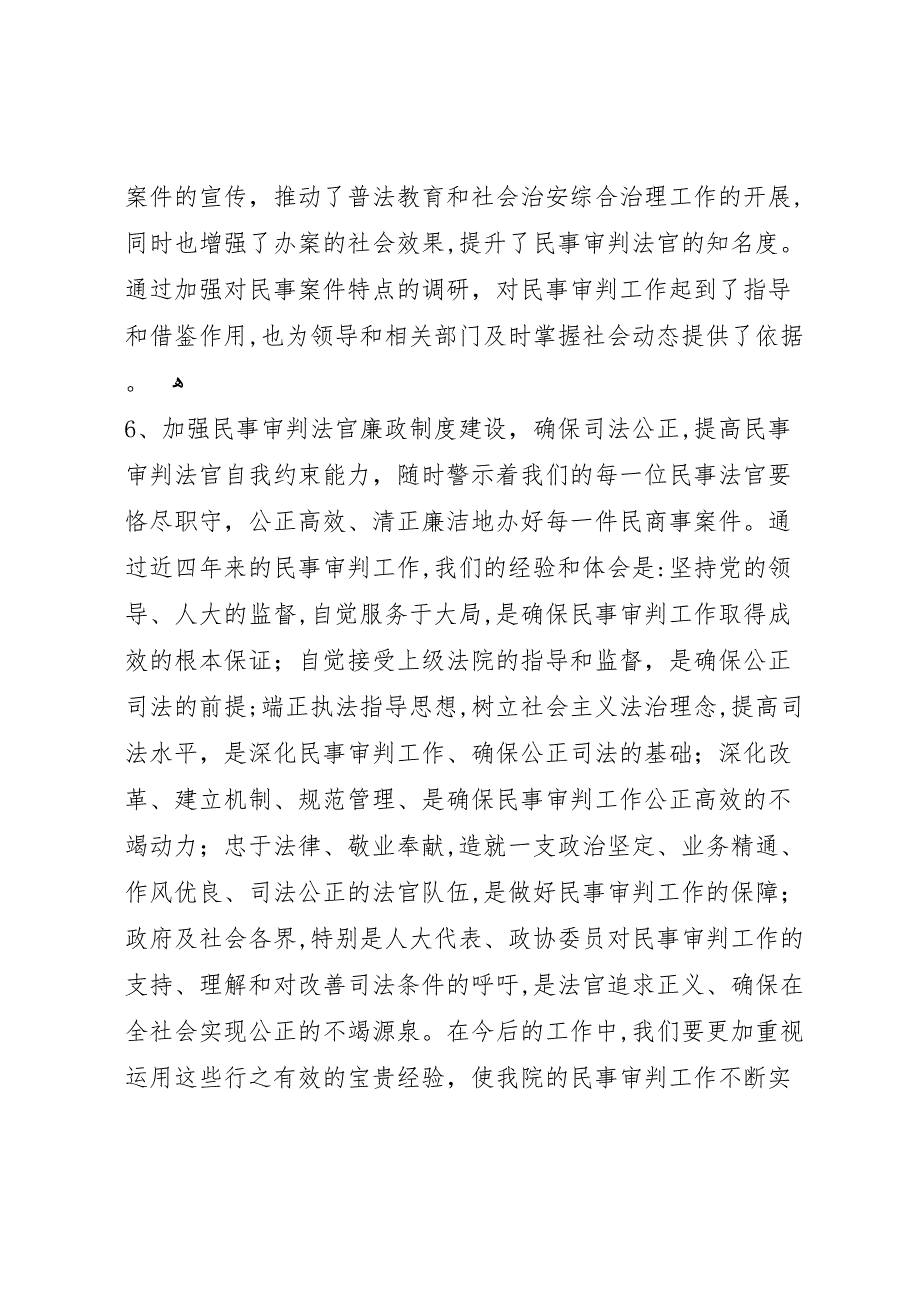 案件的宣传，推动了普法教育和社会治安综合治理工作的开展,
同时也增强了办案的社会效果,提升了民事审判法官的知名度。
通过加强对民事案件特点的调研，对民事审判工作起到了指导
和借鉴作用,也为领导和相关部门及时掌握社会动态提供了依据
。 ﻫ
6、加强民事审判法官廉政制度建设，确保司法公正,提高民事
审判法官自我约束能力，随时警示着我们的每一位民事法官要
恪尽职守，公正高效、清正廉洁地办好每一件民商事案件。通
过近四年来的民事审判工作,我们的经验和体会是:坚持党的领
导、人大的监督,自觉服务于大局,是确保民事审判工作取得成
效的根本保证；自觉接受上级法院的指导和监督，是确保公正
司法的前提;端正执法指导思想,树立社会主义法治理念,提高司
法水平，是深化民事审判工作、确保公正司法的基础；深化改
革、建立机制、规范管理、是确保民事审判工作公正高效的不
竭动力；忠于法律、敬业奉献,造就一支政治坚定、业务精通、
作风优良、司法公正的法官队伍,是做好民事审判工作的保障；
政府及社会各界,特别是人大代表、政协委员对民事审判工作的
支持、理解和对改善司法条件的呼吁,是法官追求正义、确保在
全社会实现公正的不竭源泉。在今后的工作中,我们要更加重视
运用这些行之有效的宝贵经验，使我院的民事审判工作不断实